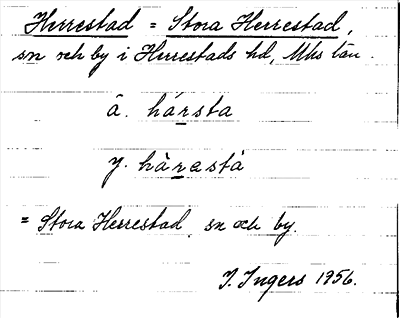 Herrestad = Stora Herrestad,
sn och by i Herrestads hd, Mhs län.
ä. hársta
y. hàrastà
= Stora Herrestad, sn och by.
I. Ingers 1956.